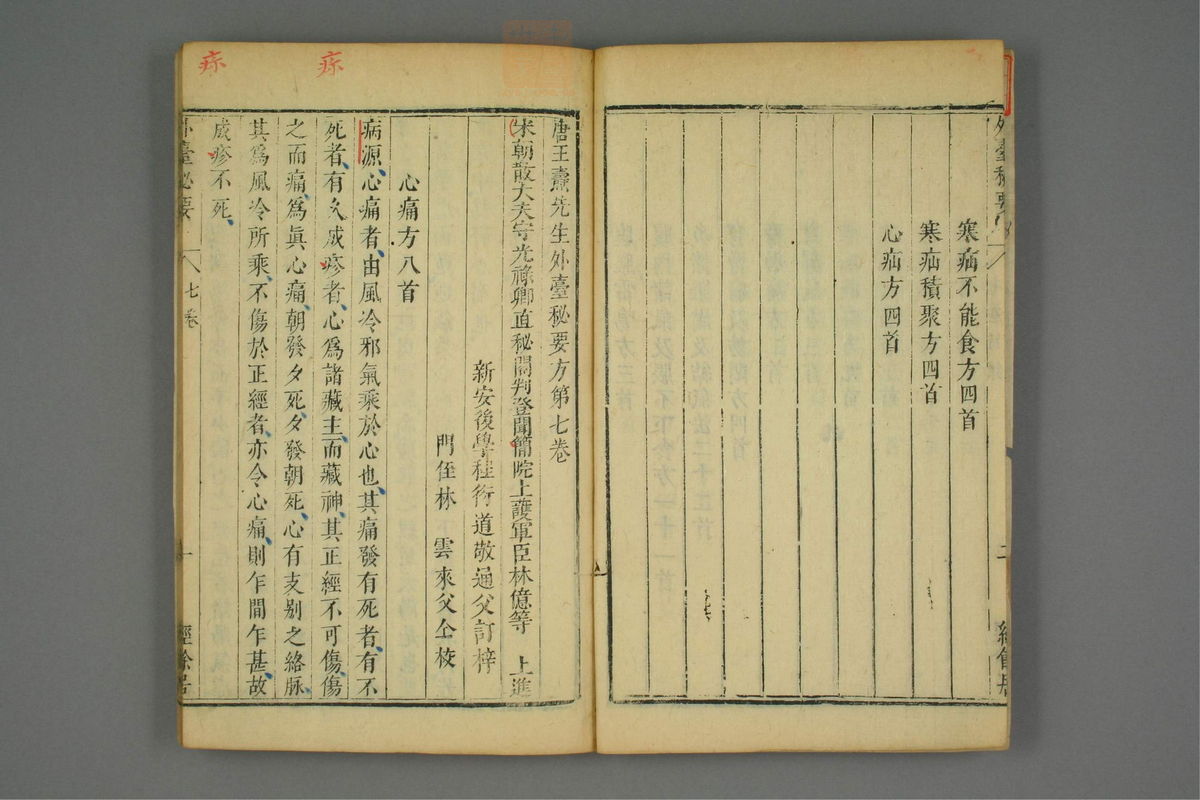 寒疝不能食方四首
寒疝積聚方四首
心疝方四首
唐王燾先生外臺秘要方第七卷
宋朝散大夫守光祿卿直秘閣判登聞簡院上護軍臣林億等 上進
新安後學程衍道敬通父訂梓
門侄林 雲來父仝校
心痛方八首
病源心痛者由風冷邪氣乘於心也其痛發有死者有不
死者有久成疹者心爲諸藏主而藏神其正經不可傷傷
之而痛爲眞心痛朝發夕死夕發朝死心有支别之絡脉
其爲風冷所乘不傷於正經者亦令心痛則乍間乍甚故
成疹不死
外臺秘要
七卷
一
經餘居
疹
疹